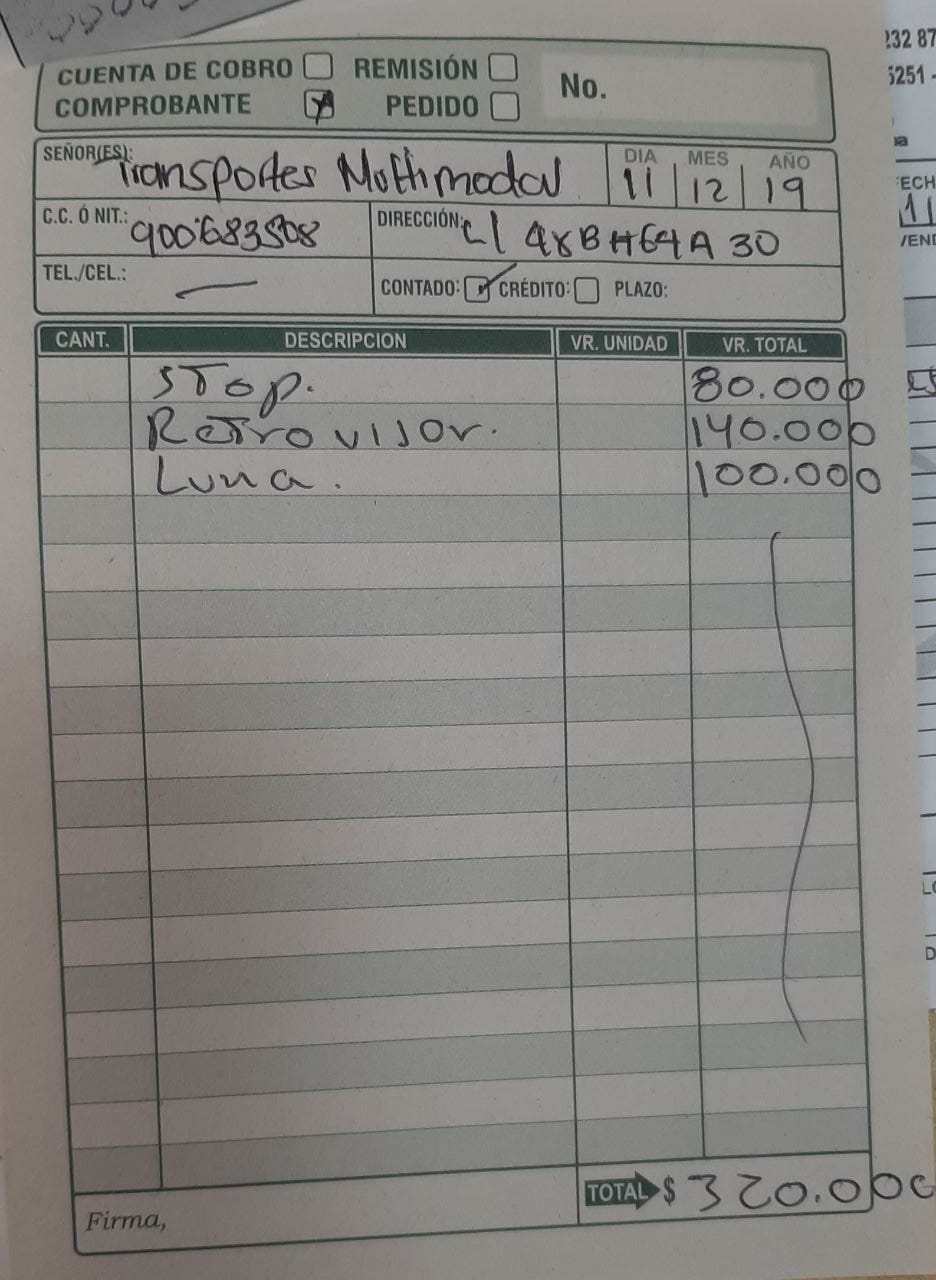 CUENTA DE COBRO REMISIÓN No.
COMPROBANTE X PEDIDO
SEÑOR(ES): Transportes Moltimodal DIA MES AÑO
11 12 19
C.C. Ó NIT.: 900683508 DIRECCIÓN: cl 48B #64A 30
TEL./CEL.: — CONTADO: CRÉDITO: PLAZO:
CANT. DESCRIPCION VR. UNIDAD VR. TOTAL
STop. 80.000
Retrovisor. 140.000
Luna. 100.000
TOTAL $ 320.000
Firma,
232 87
5251 -
ECH
11
/END